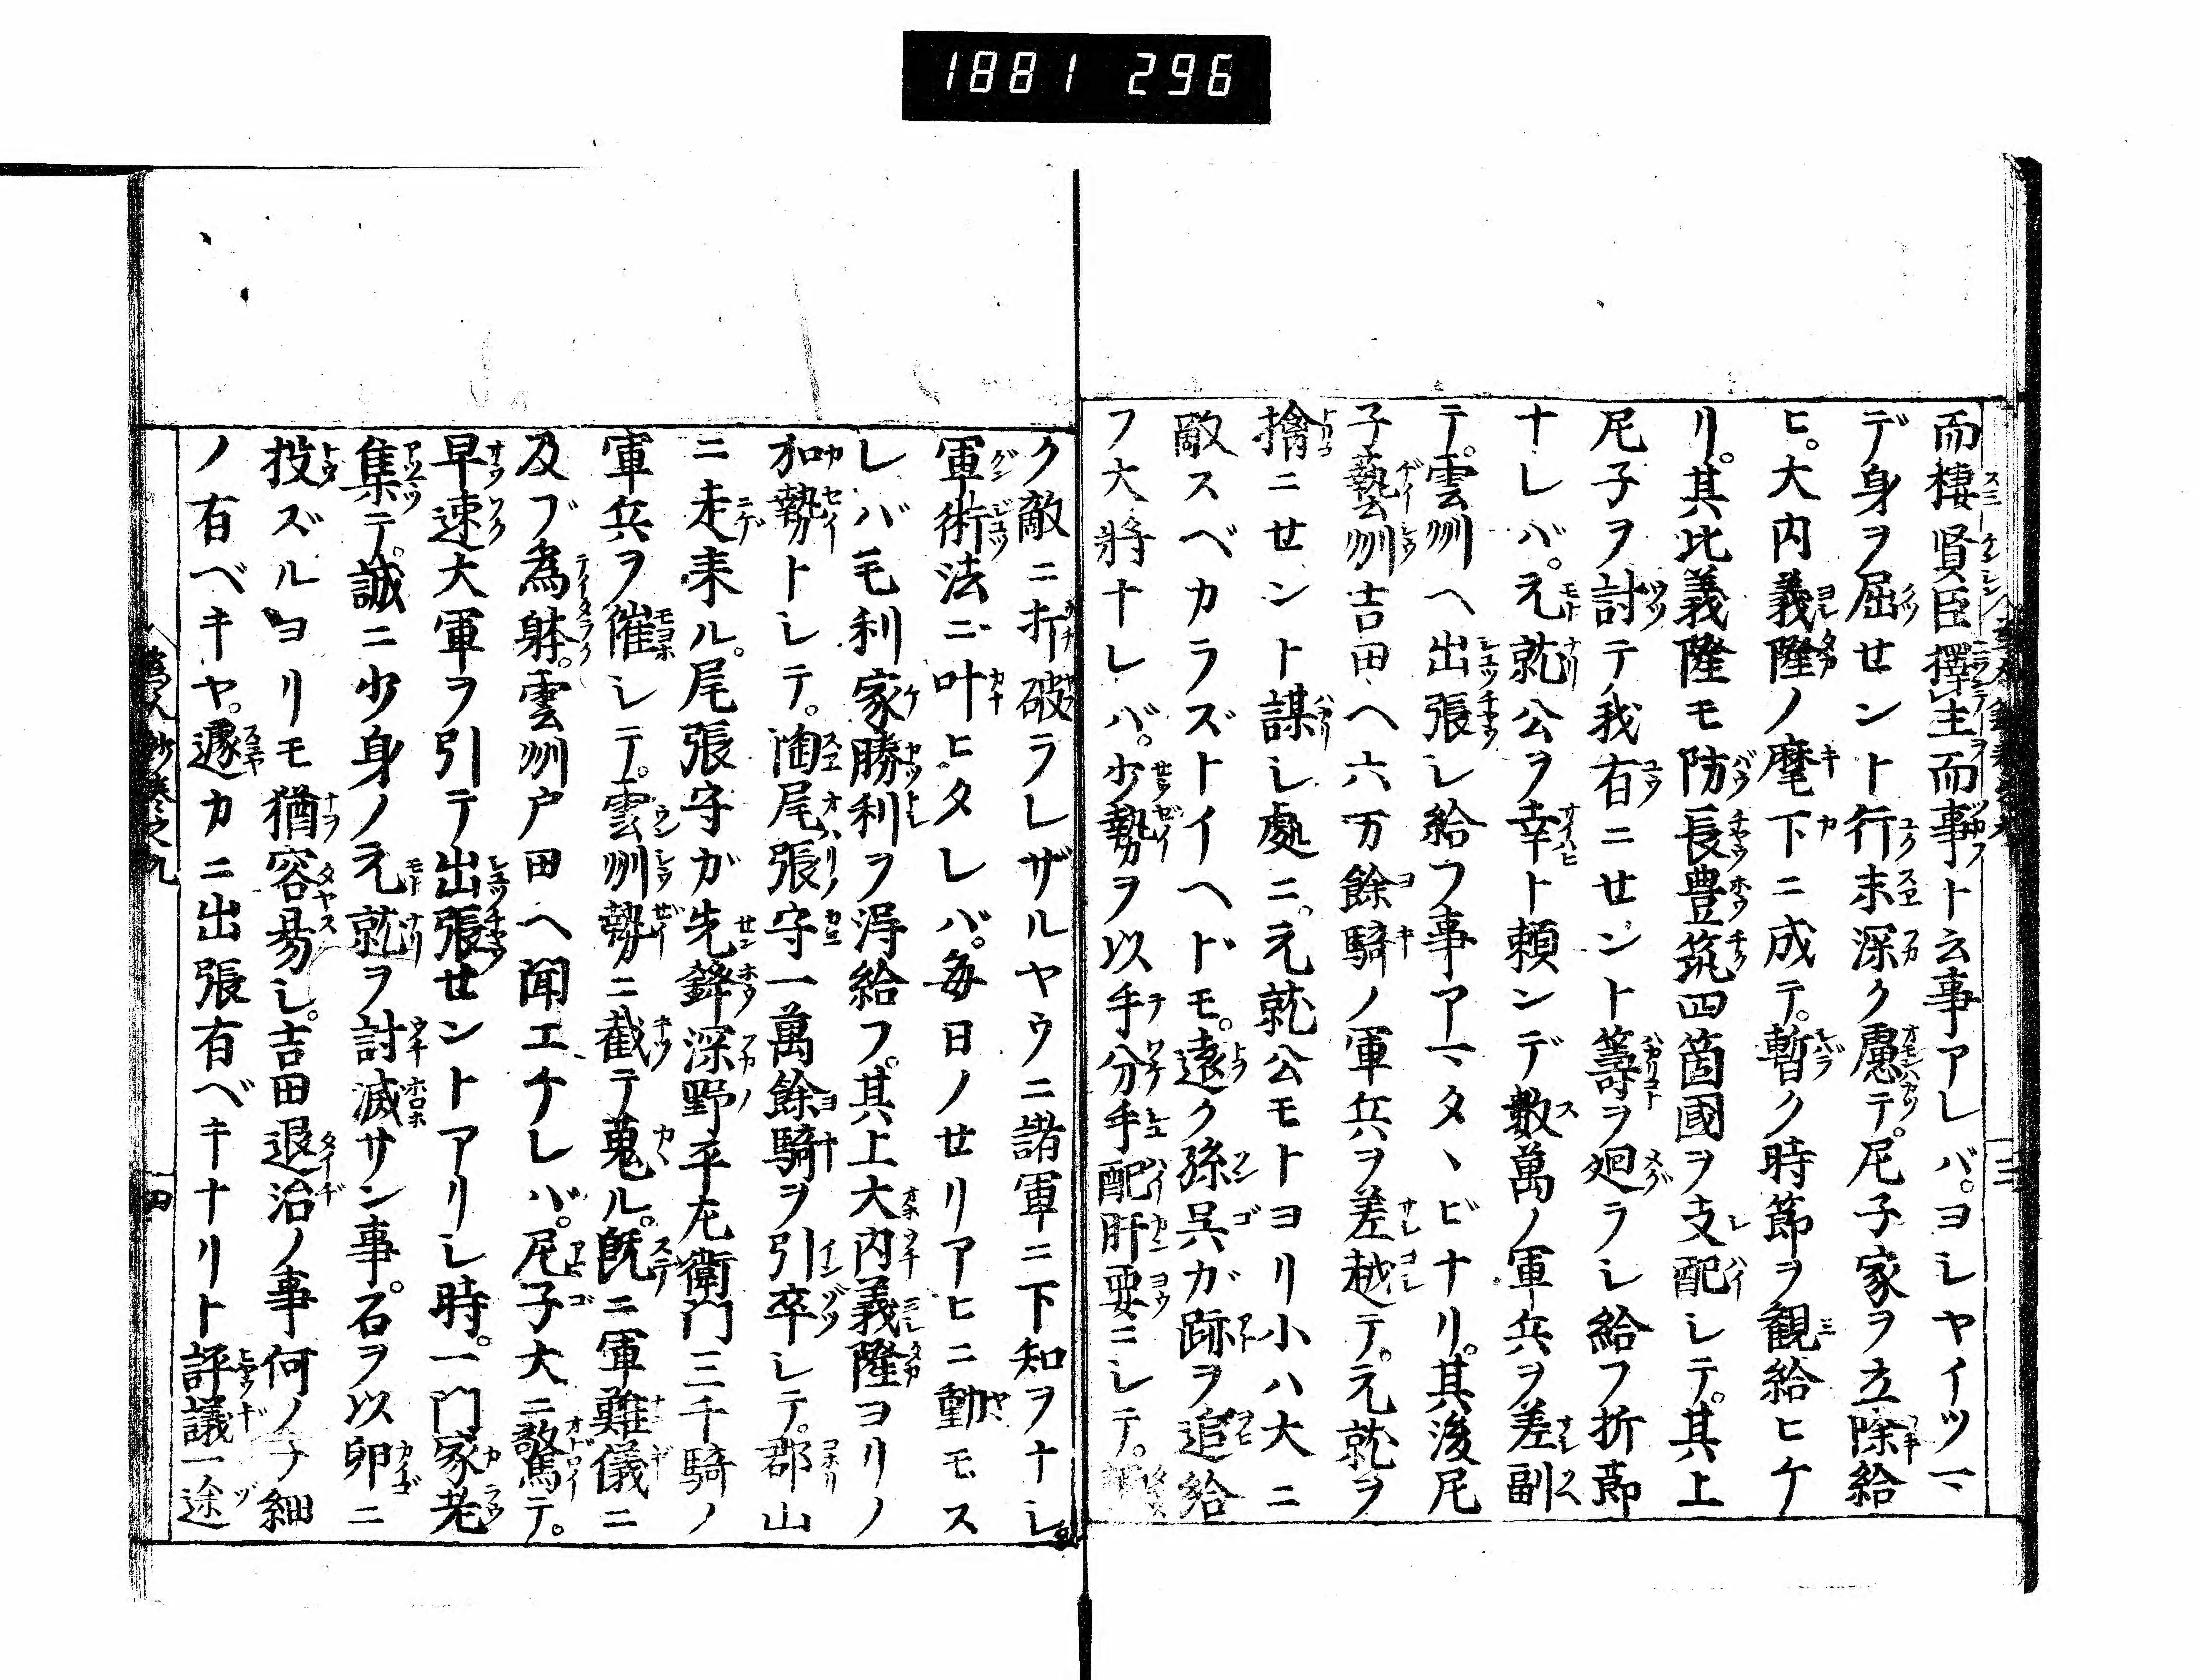 1881 296
而棲賢臣擇主而事ト云事アレバ。ヨシヤイツマ
デ身ヲ屈せント行末深ク慮テ。尼子家ヲ立除給
ヒ。大内義隆ノ麾下ニ成テ。暫ク時節ヲ観給ヒケ
リ。其比義隆モ防長豊筑四箇國ヲ支配シテ。其上
尼子ヲ討テ我有ニせント籌ヲ廻ラシ給フ折節
ナレバ。元就公ヲ幸ト頼ンデ数萬ノ軍兵ヲ差副
テ。雲州へ出張シ給フ事アマタヽビナリ。其後尼
子藝州吉田へ六万餘騎ノ軍兵ヲ差越テ。元就ヲ
擒ニせント謀シ處ニ。元就公モトヨリ小ハ大ニ
敵スベカラズトイヘドモ。遠ク孫呉ガ跡ヲ追給
フ大將ナレバ。少勢ヲ以手分手配肝要ニシテ。
ク敵ニ折破ラレザルヤウニ諸軍ニ下知ヲナシ。
軍術法ニ叶ヒタレバ。毎日ノせリアヒニ動モス
レバ毛利家勝利ヲ得給フ。其上大内義隆ヨリノ
加勢トシテ。陶尾張守一萬餘騎ヲ引卒シテ。郡山
ニ走来ル。尾張守ガ先鋒深野平左衛門三千騎ノ
軍兵ヲ催シテ。雲州勢ニ截テ蒐ル。既ニ軍難儀ニ
及ブ為躰。雲州戸田へ聞エケレバ。尼子大ニ驚テ。
早速大軍ヲ引テ出張せントアリシ時。一門家老
集テ。誠ニ少身ノ元就ヲ討滅サン事。石ヲ以卵ニ
投ズルヨリモ猶容易シ。吉田退治ノ事何ノ子細
ノ有ベキヤ。遽カニ出張有ベキナリト評議一途
巻之九
四